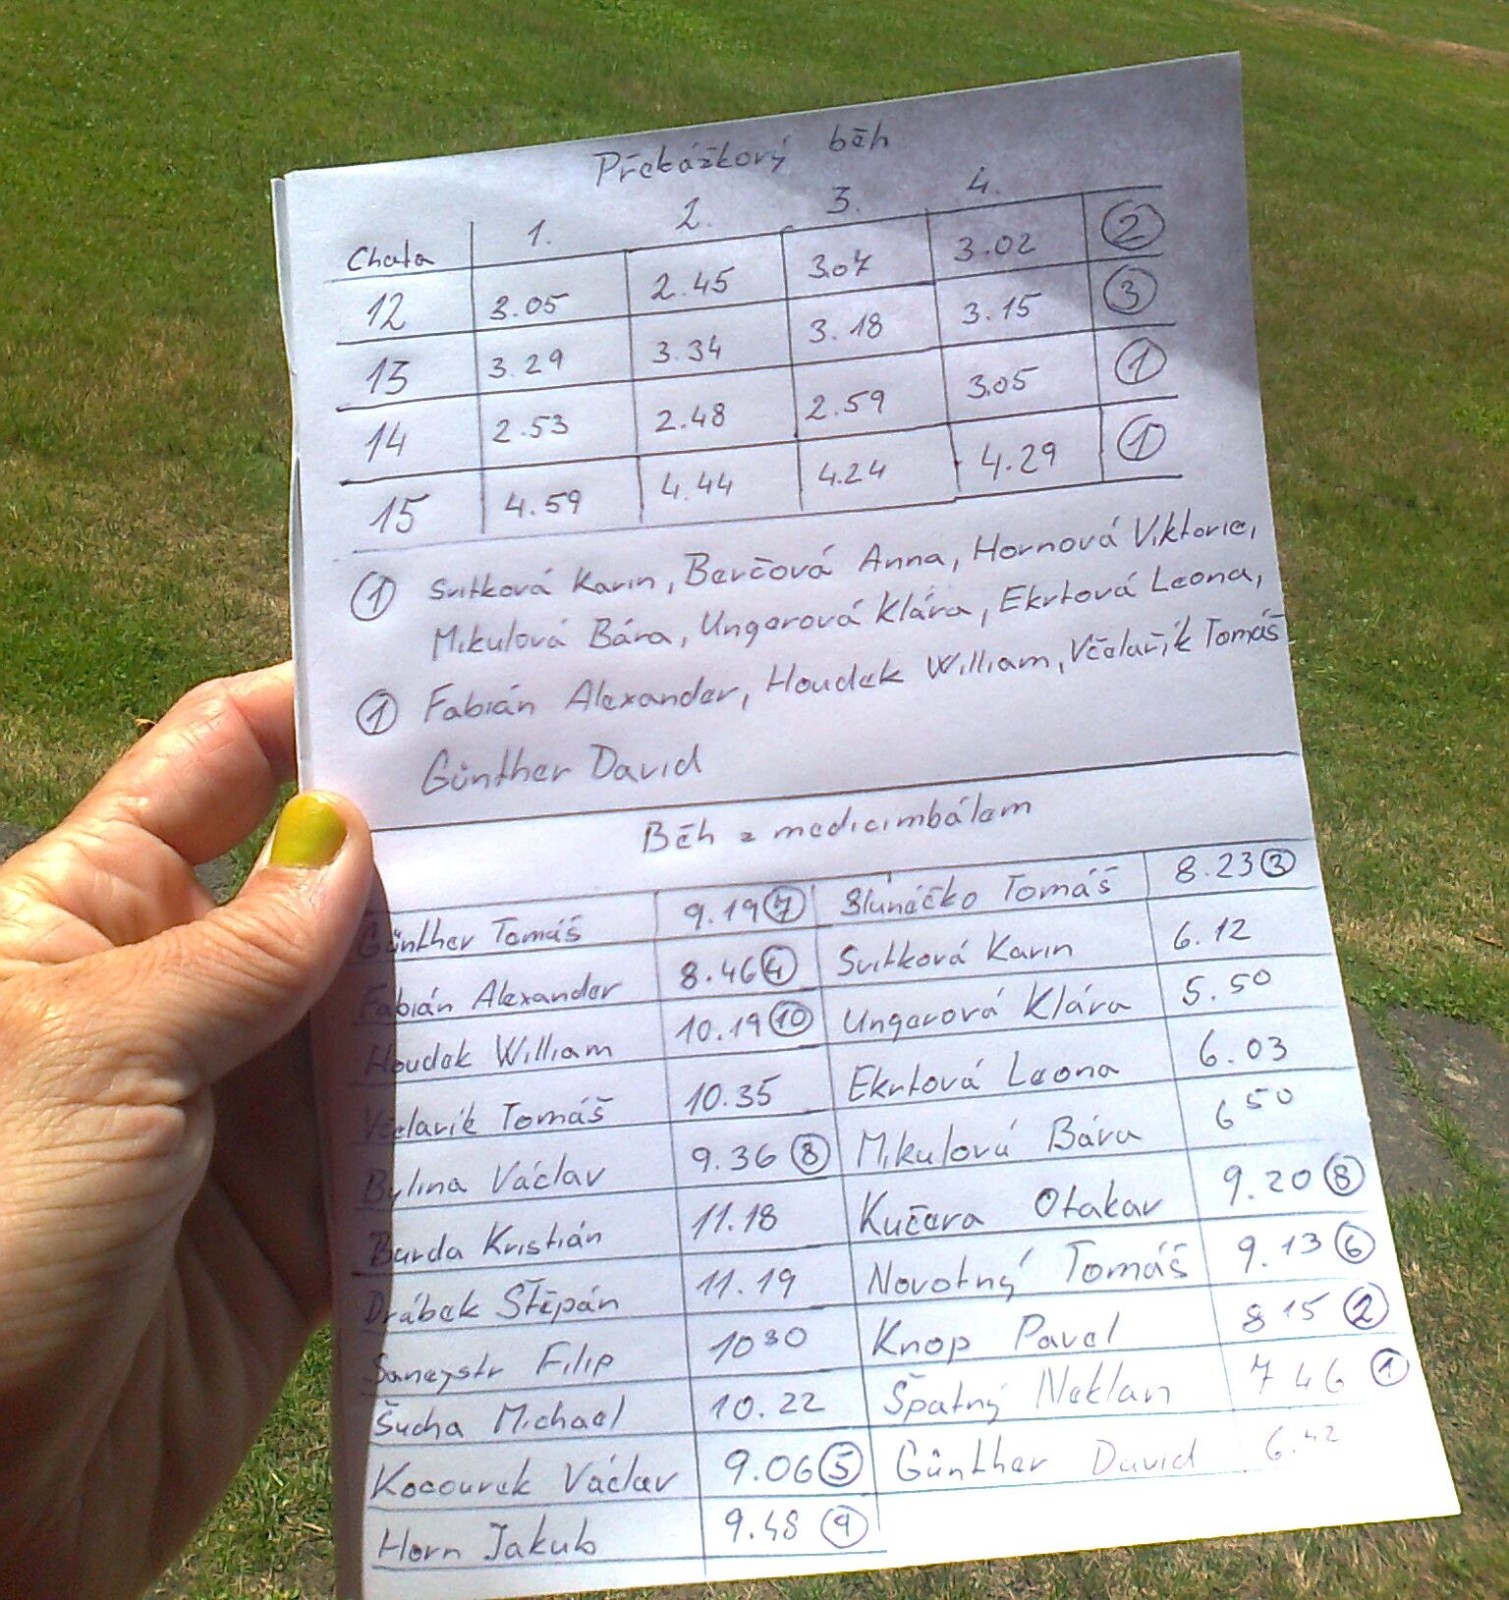 Překážkový běh
Chata 1. 2. 3. 4.
12 3.05 2.45 3.07 3.02 2
13 3.29 3.34 3.18 3.15 3
14 2.53 2.48 2.59 3.05 1
15 4.59 4.44 4.24 4.29 1
1 Svitková Karin, Berčová Anna, Hornová Viktorie,
Mikulová Bára, Ungerová Klára, Ekrtová Leona,
1 Fabián Alexander, Houdek William, Včelařík Tomáš
Günther David
Běh z medicimbálem
Günther Tomáš 9.19 7 Slunéčko Tomáš 8.23 3
Fabián Alexander 8.46 4 Svitková Karin 6.12
Houdek William 10.19 10 Ungerová Klára 5.50
Včelařík Tomáš 10.35 Ekrtová Leona 6.03
Bylina Václav 9.36 8 Mikulová Bára 6 50
Burda Kristián 11.18 Kučera Otakar 9.20 8
Drábek Štěpán 11.19 Novotný Tomáš 9.13 6
Filip 10 30 Knop Pavel 8 15 2
Šucha Michael 10.22 Špatný Neklan 7 46 1
Kocourek Václav 9.06 5 Günther David 6.42
Horn Jakub 9.48 9